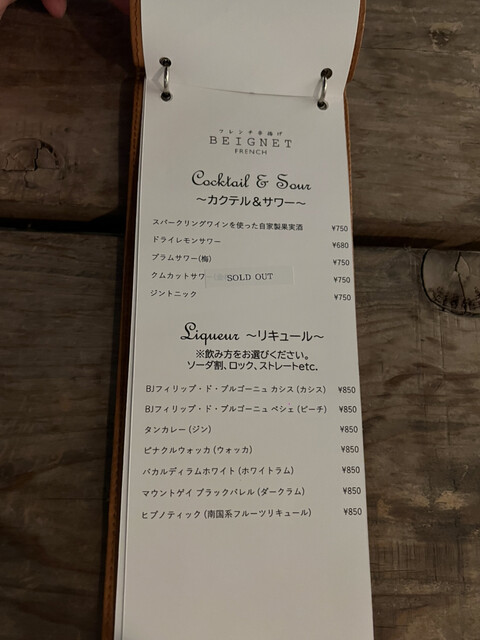 フレンチ串揚げ
BEIGNET
FRENCH
Cocktail & Sour
～カクテル&サワー～
スパークリングワインを使った自家製果実酒 ¥750
ドライレモンサワー ¥680
プラムサワー(梅) ¥750
クムカットサワー SOLD OUT ¥750
ジントニック ¥750
Liqueur ～リキュール～
※飲み方をお選びください。
ソーダ割、ロック、ストレートetc.
BJフィリップ・ド・ブルゴーニュ カシス (カシス) ¥850
BJフィリップ・ド・ブルゴーニュ ペシェ (ピーチ) ¥850
タンカレー (ジン) ¥850
ピナクルウォッカ (ウォッカ) ¥850
バカルディラムホワイト (ホワイトラム) ¥850
マウントゲイ ブラックバレル (ダークラム) ¥850
ヒプノティック (南国系フルーツリキュール) ¥850